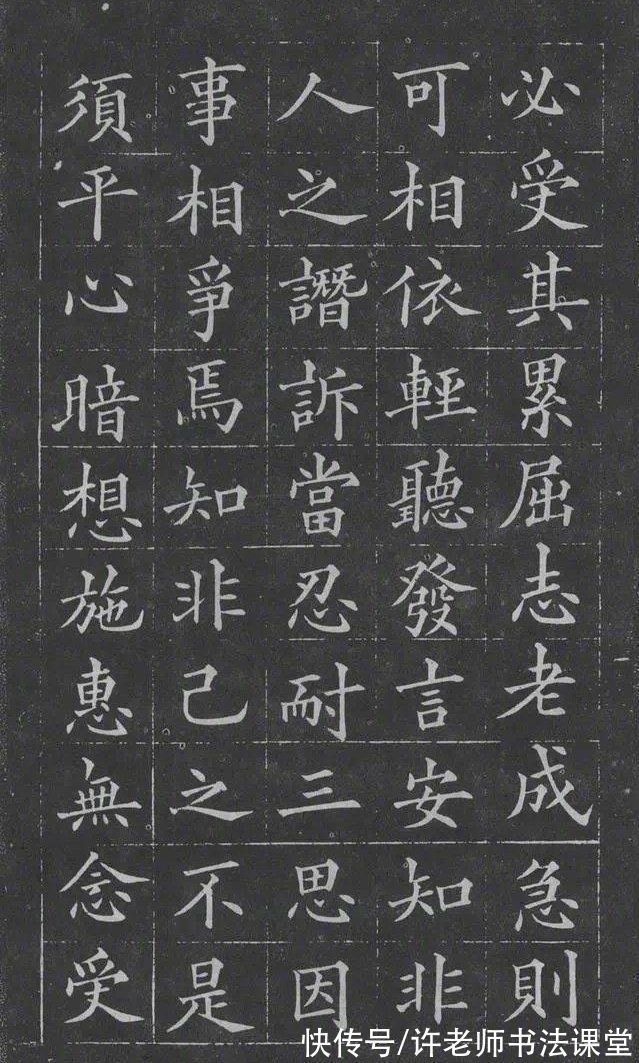 必受其累屈志老成急則
可相依輕聽發言安知非
人之譖訴當忍耐三思因
事相爭焉知非己之不是
須平心暗想施惠無念受
快传号/许老师书法课堂